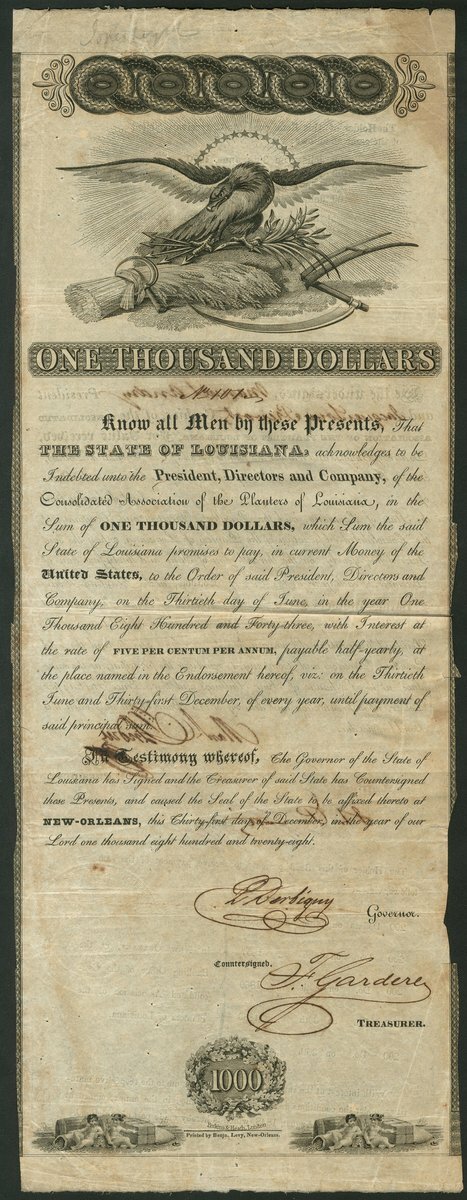 ONE THOUSAND DOLLARS
No. 101
Know all Men by these Presents, That
THE STATE OF LOUISIANA, acknowledges to be
Indebted unto the President, Directors and Company, of the
Consolidated Association of the Planters of Louisiana, in the
Sum of ONE THOUSAND DOLLARS, which Sum the said
State of Louisiana promises to pay, in current Money of the
United States, to the Order of said President, Directors and
Company, on the Thirtieth day of June, in the year One
Thousand Eight Hundred and Forty-three, with Interest at
the rate of FIVE PER CENTUM PER ANNUM, payable half-yearly, at
the place named in the Endorsement hereof, viz: on the Thirtieth
June and Thirty-first December, of every year, until payment of
said principal sum.
In Testimony whereof, The Governor of the State of
Louisiana has Signed and the Treasurer of said State has Countersigned
these Presents, and caused the Seal of the State to be affixed thereto at
NEW-ORLEANS, this Thirty-first day of December, in the year of our
Lord one thousand eight hundred and twenty-eight.
P. Derbigny
Governor.
Countersigned.
F. Gardere
TREASURER.
1000
Perkins & Heath, London
Printed by Benja. Levy, New-Orleans.